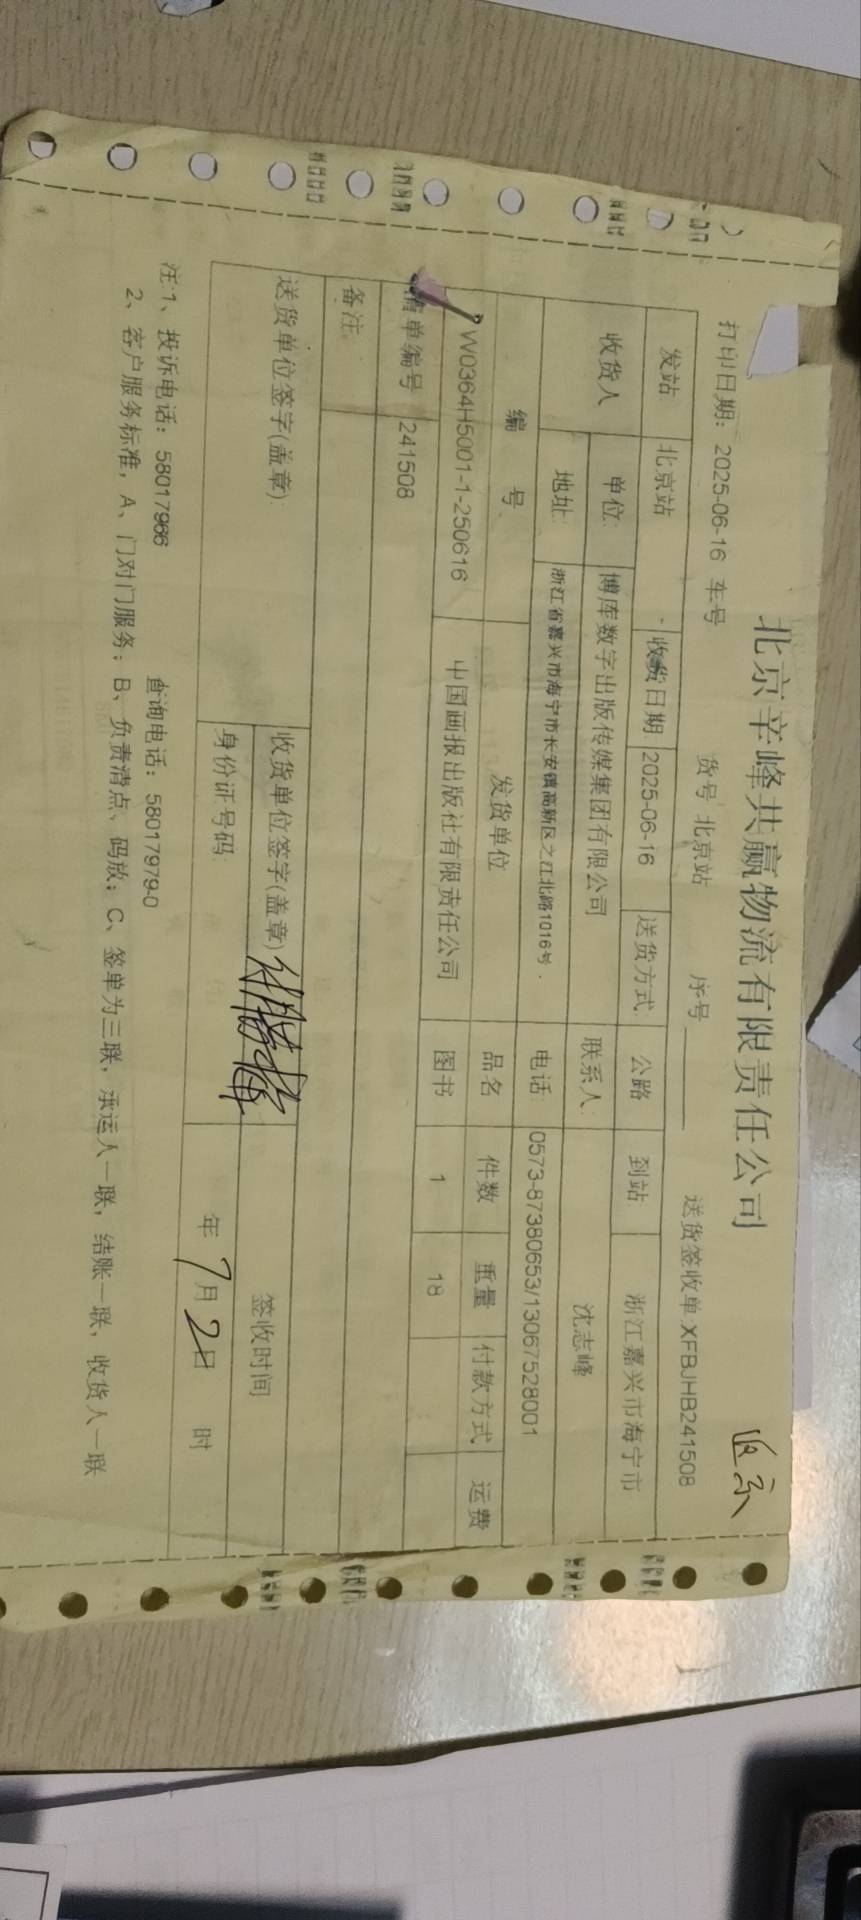 北京辛峰共赢物流有限责任公司
返京
打印日期: 2025-06-16 车号 货号 北京站 序号 送货签收单:XFBJHB241508
发站 北京站 收货日期 2025-06-16 送货方式: 公路 到站 浙江嘉兴市海宁市
收货人 单位: 博库数字出版传媒集团有限公司 联系人: 沈志峰
地址: 浙江省嘉兴市海宁市长安镇高新区之江北路1016号. 电话: 0573-87380653/13067528001
编 号 发货单位 品名 件数 重量 付款方式 运费
W0364H5001-1-250616 中国画报出版社有限责任公司 图书 1 18
清单编号 241508
备注:
送货单位签字(盖章): 收货单位签字(盖章) 签收时间
身份证号码: 年 7月 2日 时
注:1、投诉电话: 58017966 查询电话: 58017979-0
2、客户服务标准, A、门对门服务; B、负责清点、码放; C、签单为三联, 承运人一联, 结账一联, 收货人一联